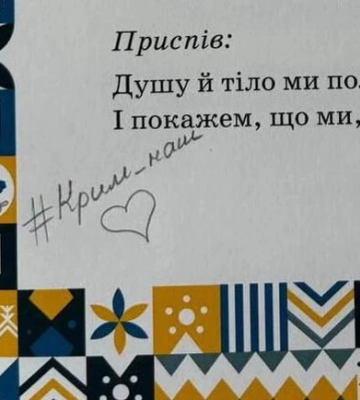 Приспів:
Душу й тіло ми
І покажем, що ми,
#Крим_наш